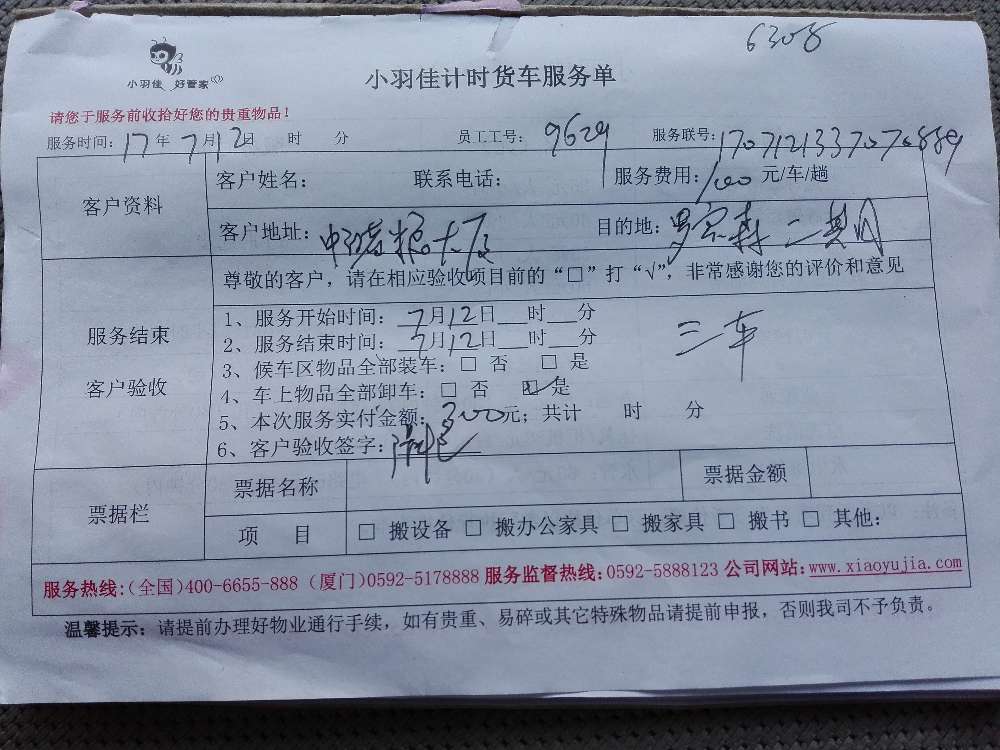 6308
小羽佳 好管家
小羽佳计时货车服务单
请您于服务前收拾好您的贵重物品！
服务时间：17年7月12日 时 分 员工工号：9629 服务联号：170712133707
客户资料
客户姓名： 联系电话： 服务费用：100元/车/趟
客户地址：中 粮大厦 目的地：
服务结束
客户验收
尊敬的客户，请在相应验收项目前的“□”打“√”，非常感谢您的评价和意见
1、服务开始时间：7月12日__时__分
2、服务结束时间：7月12日__时__分
三车
3、候车区物品全部装车：□ 否 □ 是
4、车上物品全部卸车：□ 否 ☑ 是
5、本次服务实付金额：300元；共计 时 分
6、客户验收签字：
票据栏
票据名称 票据金额
项 目 □ 搬设备 □ 搬办公家具 □ 搬家具 □ 搬书 □ 其他：
服务热线：(全国)400-6655-888 (厦门)0592-5178888 服务监督热线：0592-5888123 公司网站：www.xiaoyujia.com
温馨提示：请提前办理好物业通行手续，如有贵重、易碎或其它特殊物品请提前申报，否则我司不予负责。